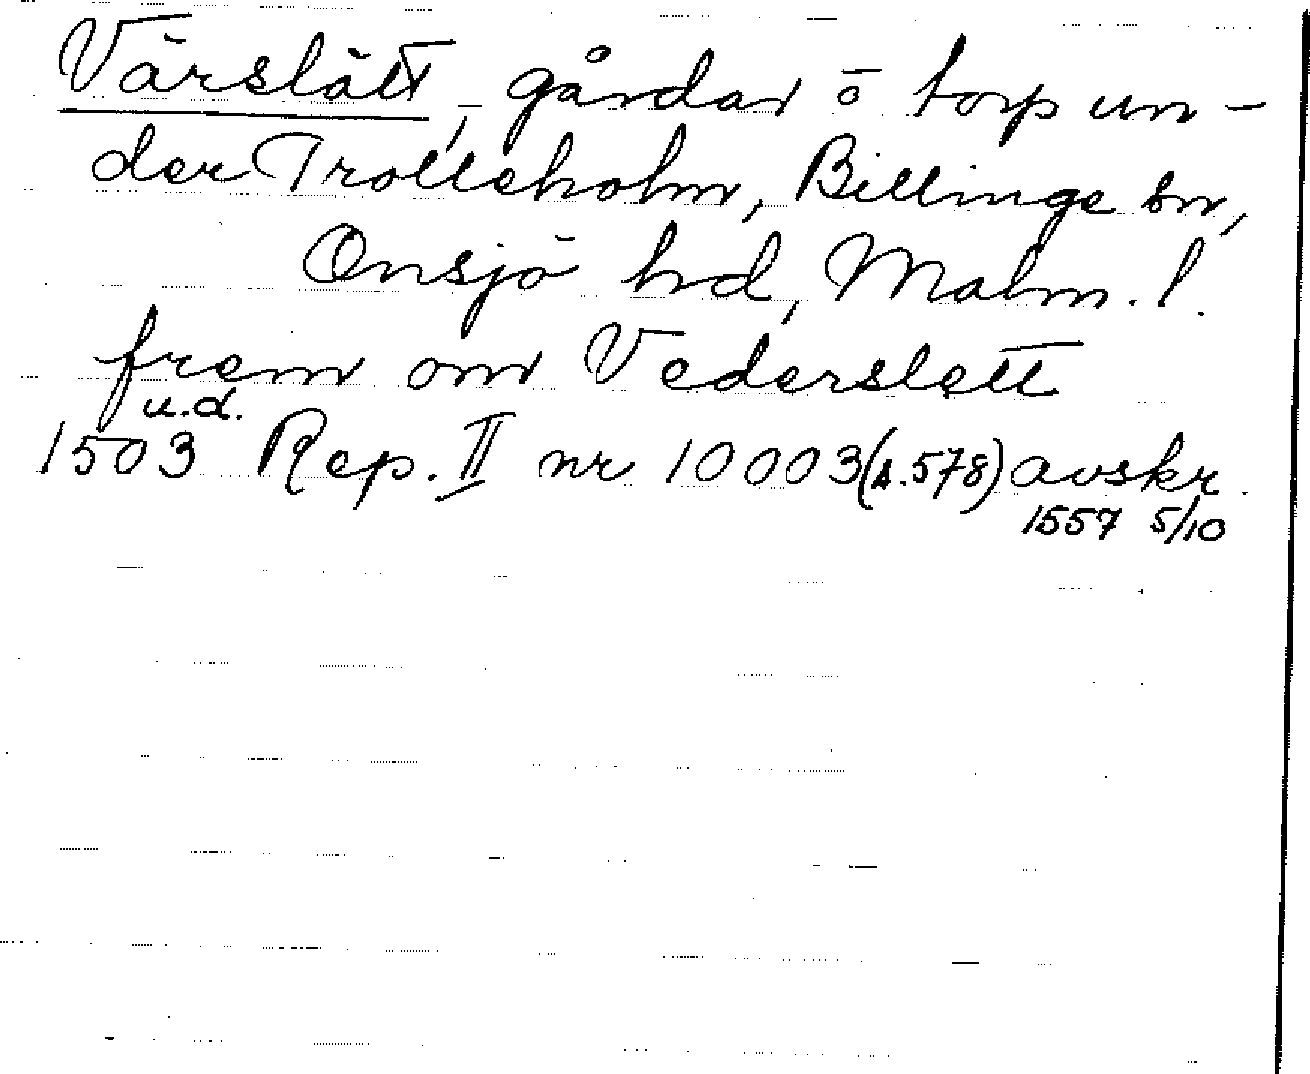 Värslätt, gårdar o torp un-
der Trolleholm, Billinge sn,
Onsjö hd, Malm. l.
frem om Vederslett
u.d.
1503 Rep. II nr 10003 (s.578) avskr.
1557 5/10